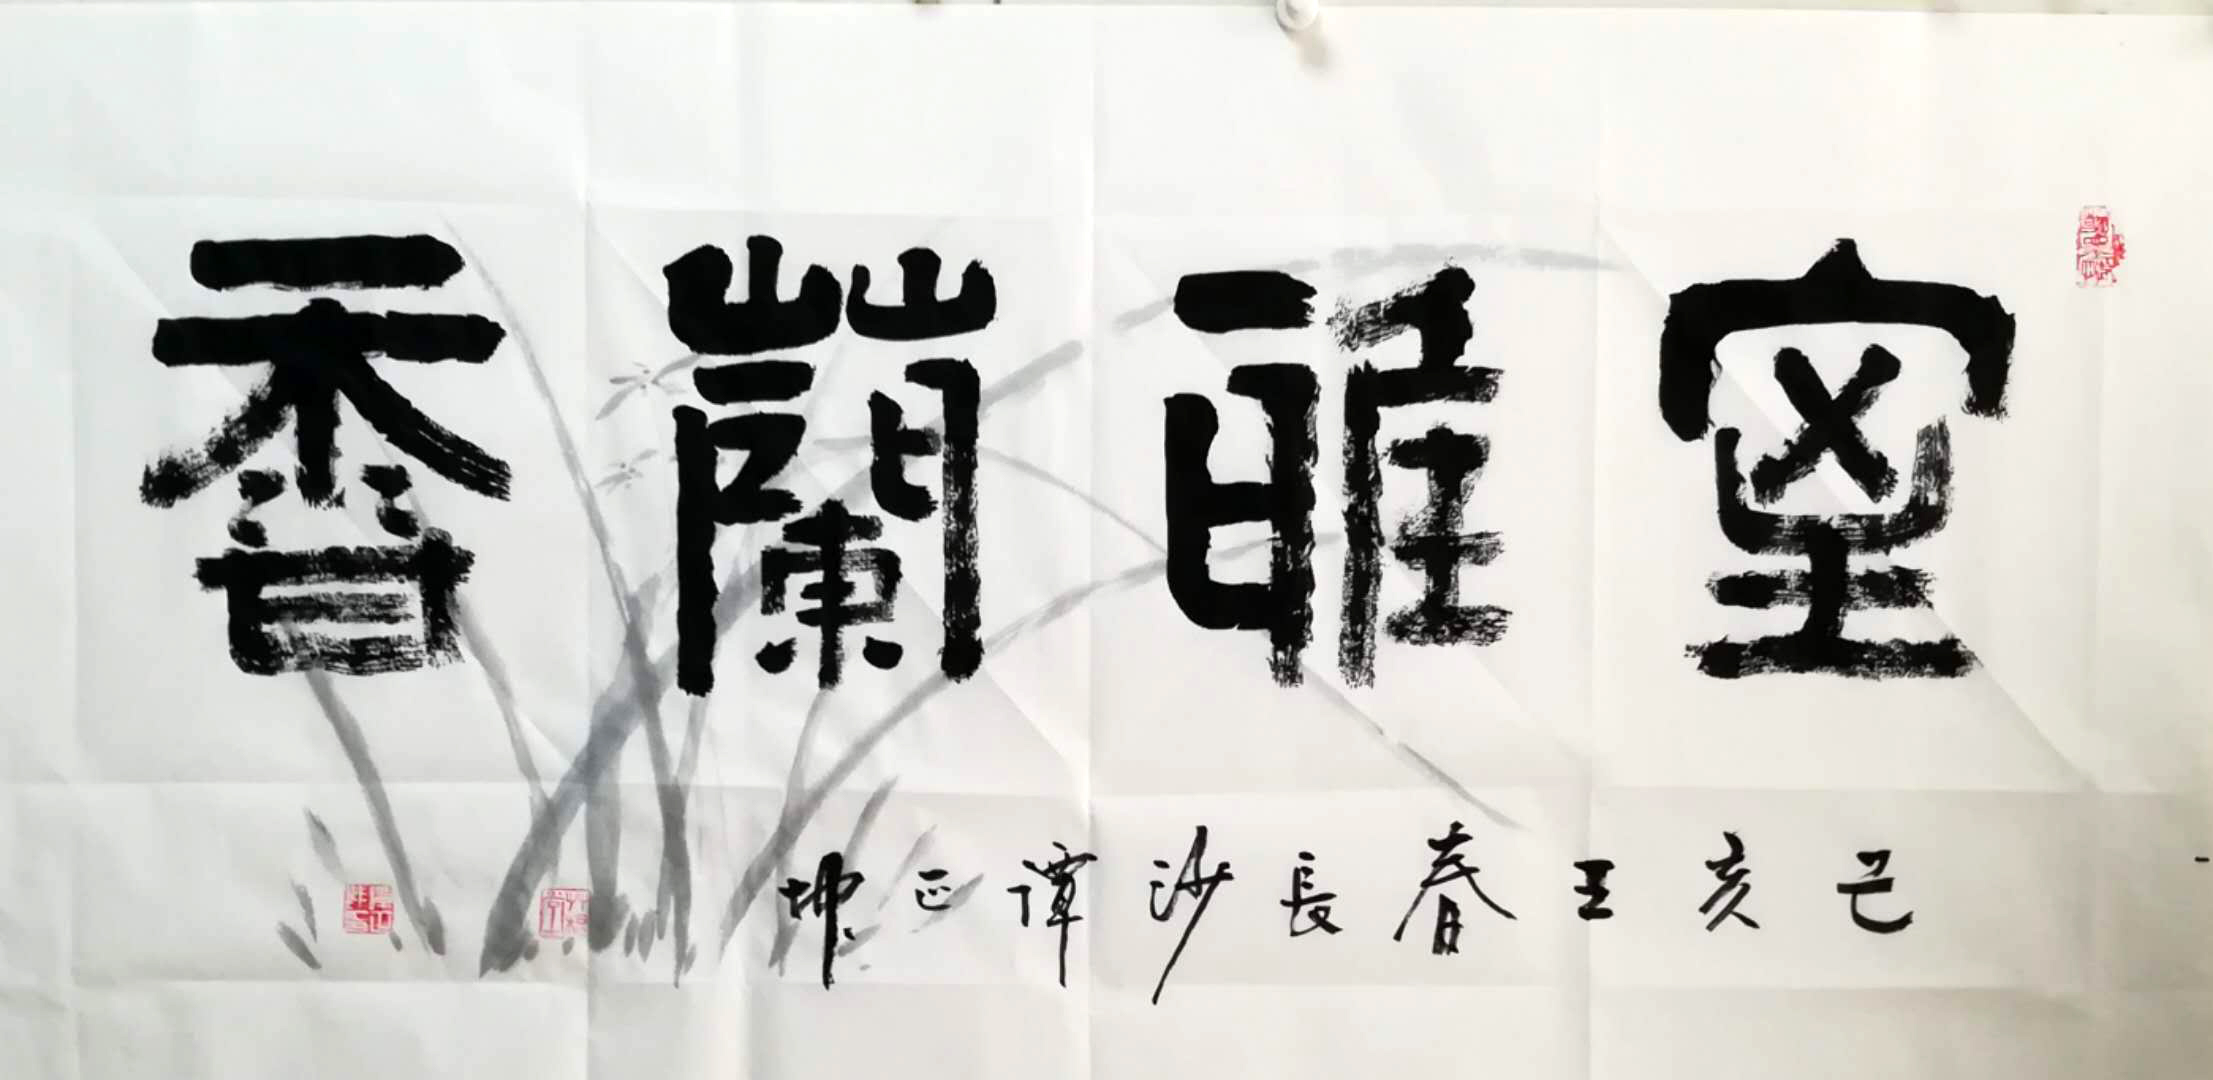 室雅蘭香
己亥王春長沙譚正坤